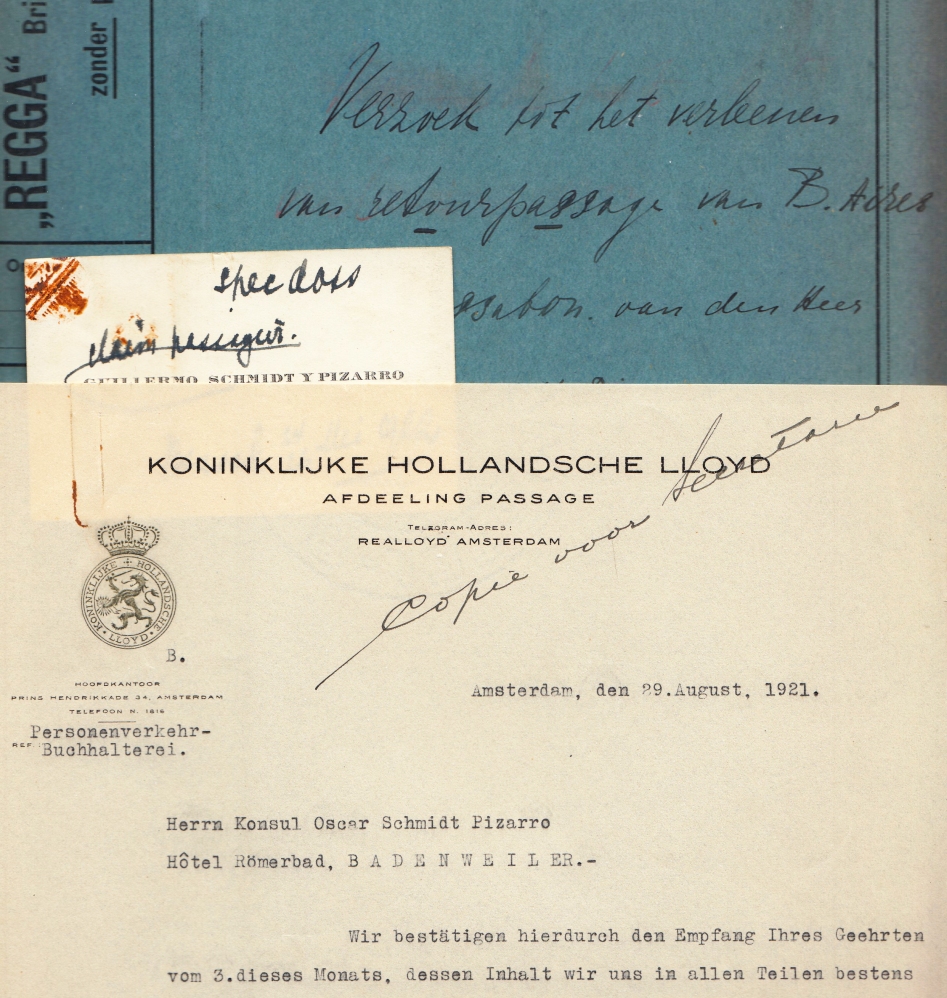 „REGGA“ Bri
zonder
Verzoek tot het verleenen
van retourpassage van B. Aires
van den Heer
spec doss
claim passagier.
GUILLERMO SCHMIDT Y PIZARRO
KONINKLIJKE HOLLANDSCHE LLOYD
AFDEELING PASSAGE
TELEGRAM-ADRES:
REALLOYD AMSTERDAM
Copie voor Secretarie
KONINKLIJKE HOLLANDSCHE LLOYD
B.
HOOFDKANTOOR
PRINS HENDRIKKADE 34, AMSTERDAM
TELEFOON N. 1816
Personenverkehr-
REF:
Buchhalterei.
Amsterdam, den 29.August, 1921.
Herrn Konsul Oscar Schmidt Pizarro
Hôtel Römerbad, B A D E N W E I L E R.-
Wir bestätigen hierdurch den Empfang Ihres Geehrten
vom 3.dieses Monats, dessen Inhalt wir uns in allen Teilen bestens